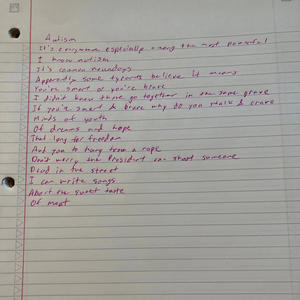 Autism
It's everywhere especially among the most powerful
I know autism
It's common nowadays
Apparently some tyrants believe it means
You're smart or you're brave
I didn't know those go together in the same phrase
If you're smart & brave why do you stalk & crave
Minds of youth
Of dreams and hope
That long for freedom
And you to hang from a rope
Don't worry the President can shoot someone
Dead in the street
I can write songs
About the sweet taste
Of meat